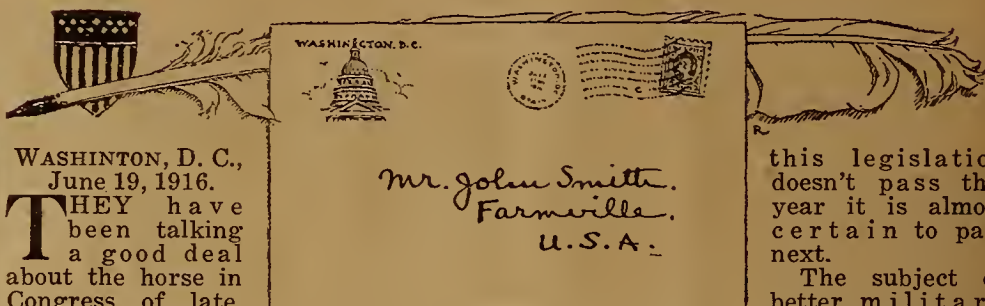 WASHINTON, D. C.,
June 19, 1916.
THEY have
been talking
a good deal
about the horse in
Congress of late,
WASHINGTON. D.C.
Mr. John Smith.
Farmville.
U.S.A.
this
doesn't pass
year it is
certain to
next.
The subject
better